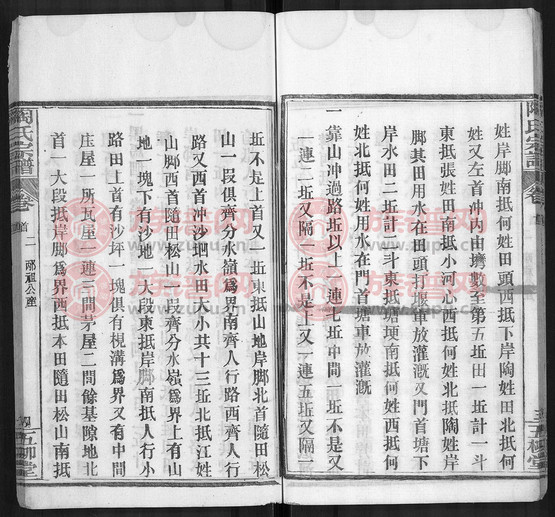 陶氏宗譜
卷首
五柳堂
姓岸脚南抵何姓田頭西抵下岸陶姓田北抵何
姓又左首冲內由塆數至第五坵田一坵計一斗
東抵張姓田南抵小河心西抵何姓北抵陶姓岸
脚其田用水在田頭打堰車放灌溉又門首塘下
岸水田二坵計一斗東抵塘埂南抵何姓西抵何
姓北抵何姓用水在門首塘車放灌溉
一靠山冲過路坵以上一連七坵中間一坵不是又
一連二坵又隔一坵不是上又一連五坵又隔一
坵不是上首又一坵東抵山地岸脚北首隨田松
山一段俱齊分水嶺爲界南齊人行路西齊人行
路又西首沖沙垇水田大小共十三坵北抵江姓
山脚西首隨田松山一段齊分水嶺爲界上有山
地一塊下有沙地一大段東抵岸脚南抵人行小
路田上首有沙坪一塊俱有梘溝爲界又有中間
庄屋一所瓦屋一連三間茅屋二間餘基隙地北
首一大段抵岸脚爲界西抵本田隨田松山南抵
陶氏宗譜
卷首
二
祠祖公產
四
五柳堂
族譜網
www.zupu.cn